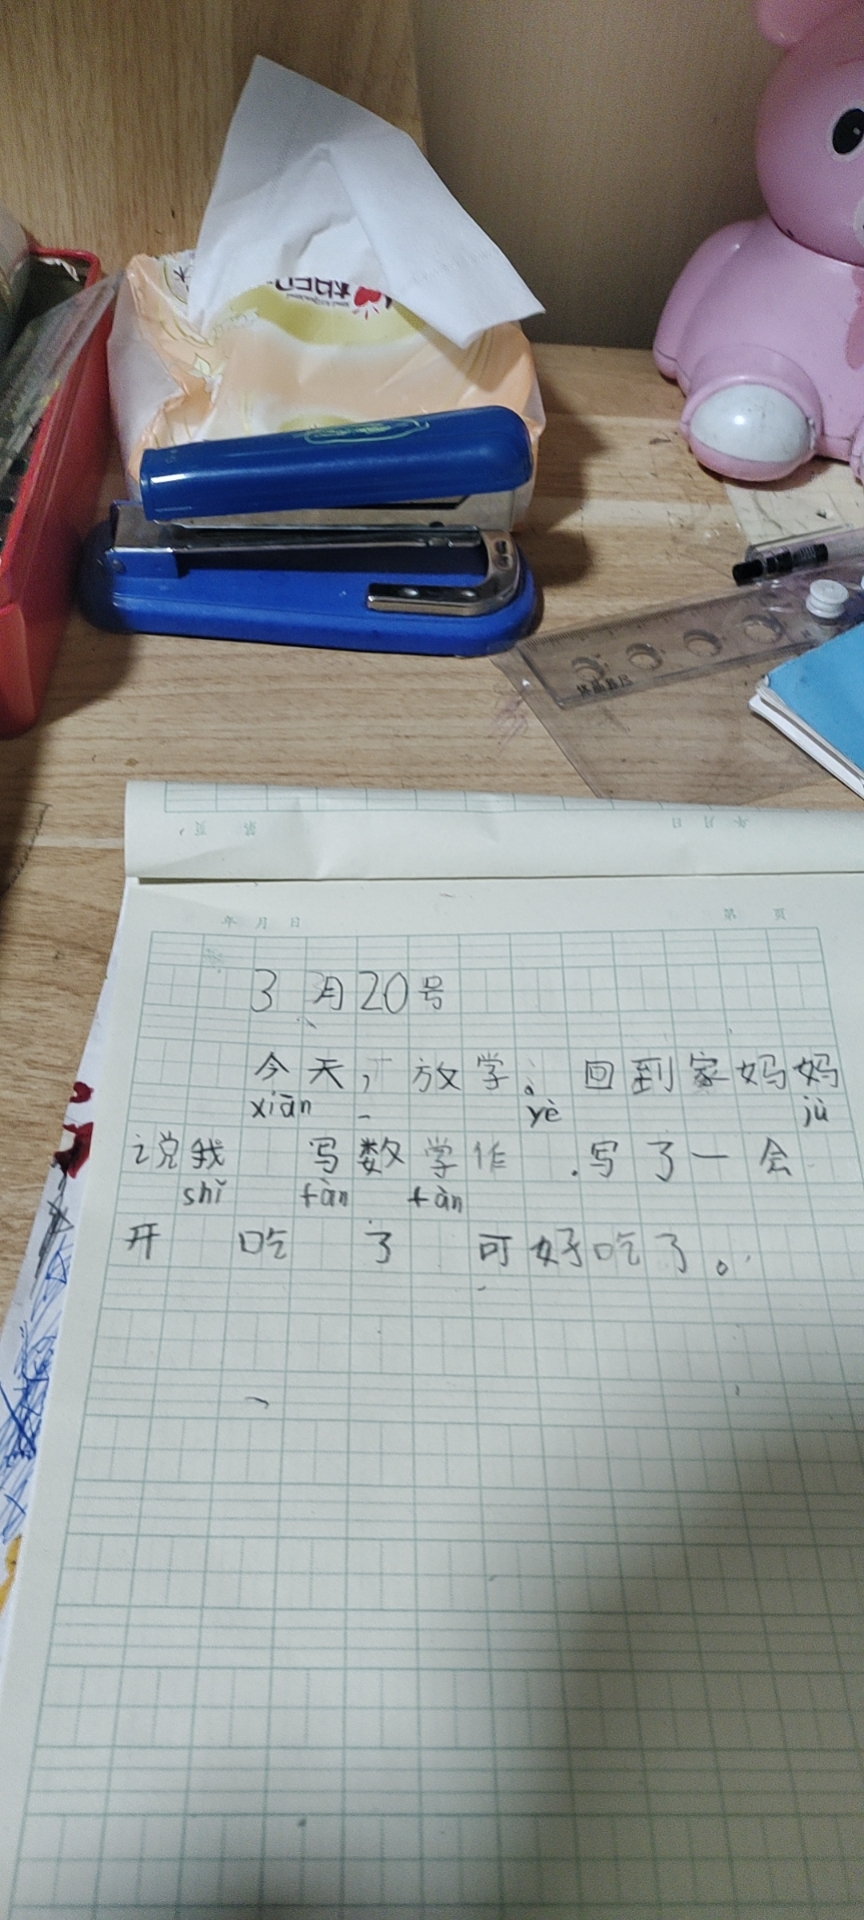 年 月 日 第 页
3月20号
今天，放学。回到家妈妈
xiān yè jù
说我 写数学作 .写了一会
shǐ fàn fàn
开 吃 了 可好吃了。